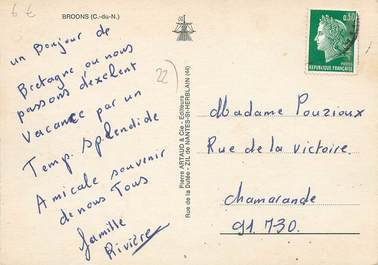 6 €
BROONS (C.-du-N.)
un Bonjour de
Bretagne ou nous
passons d'exelent
Vacance par un
Temp. Splendide
Amicale souvenir
de nous Tous
famille
Rivière
22
Pierre ARTAUD & Cie - Editeurs
Rue de la Dutée - ZIL de NANTES-ST-HERBLAIN (44)
0,30
REPUBLIQUE FRANÇAISE
Madame Pouzioux
Rue de la victoire.
Chamarande
91.730.